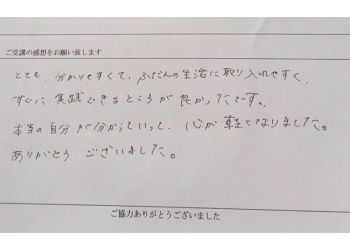 ご受講の感想をお願い致します
とても、分かりやすくて、ふだんの生活に取り入れやすく、
すぐに実践できるところが良かったです。
本当の自分が分かっていって、心が軽くなりました。
ありがとうございました。
ご協力ありがとうございました